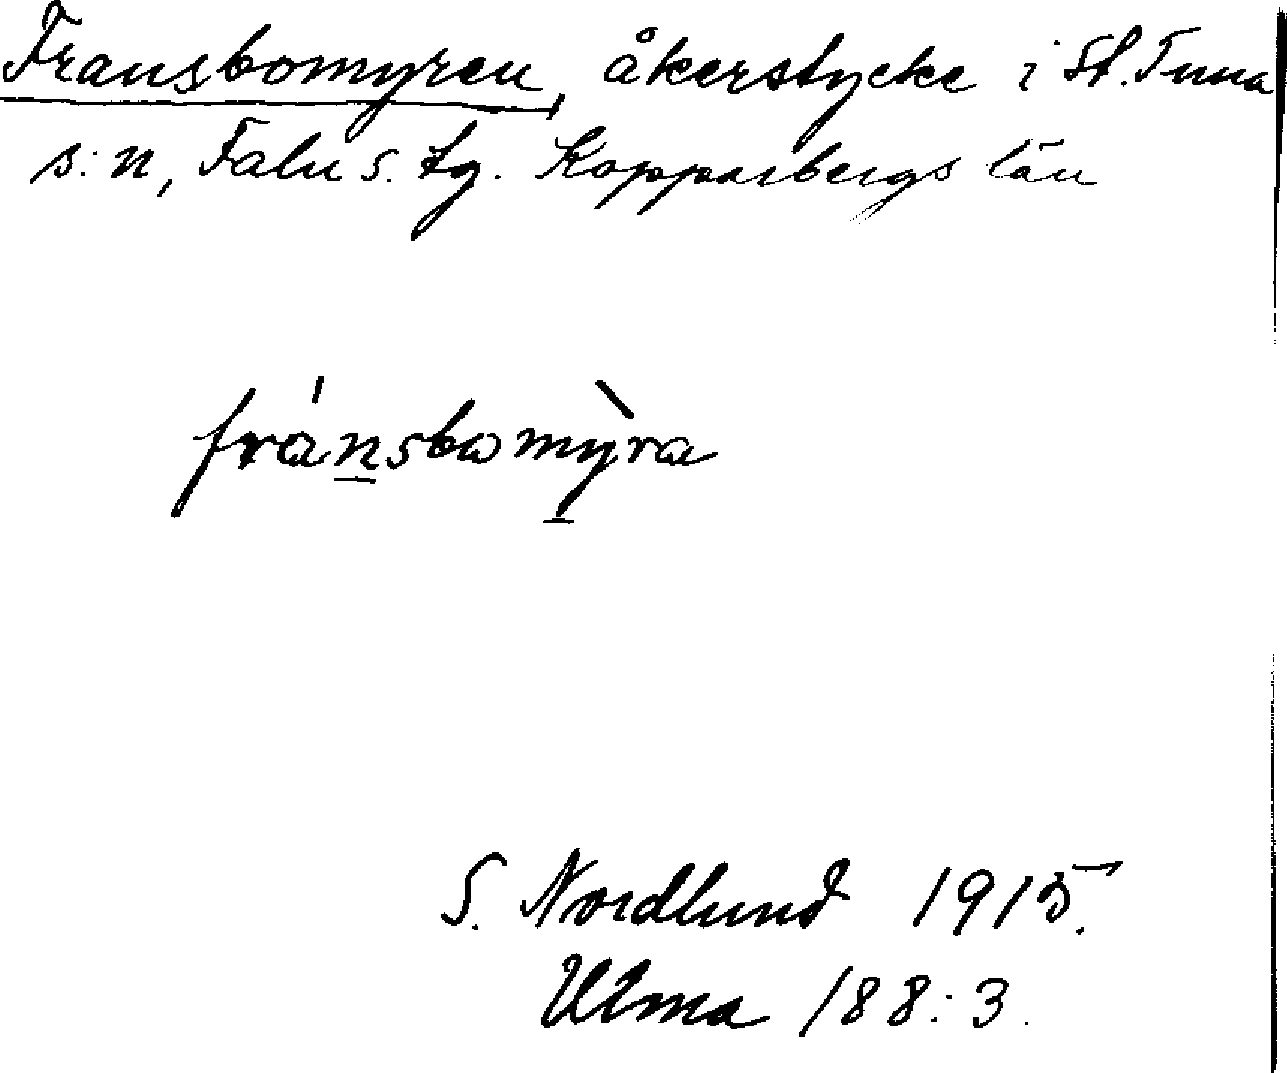 Fransbomyren, åkerstycke i St. Tuna
s:n, Falu s. tg. Kopparbergs län
fránsbomỳra
S. Nordlund 1915.
Ulma 188:3.